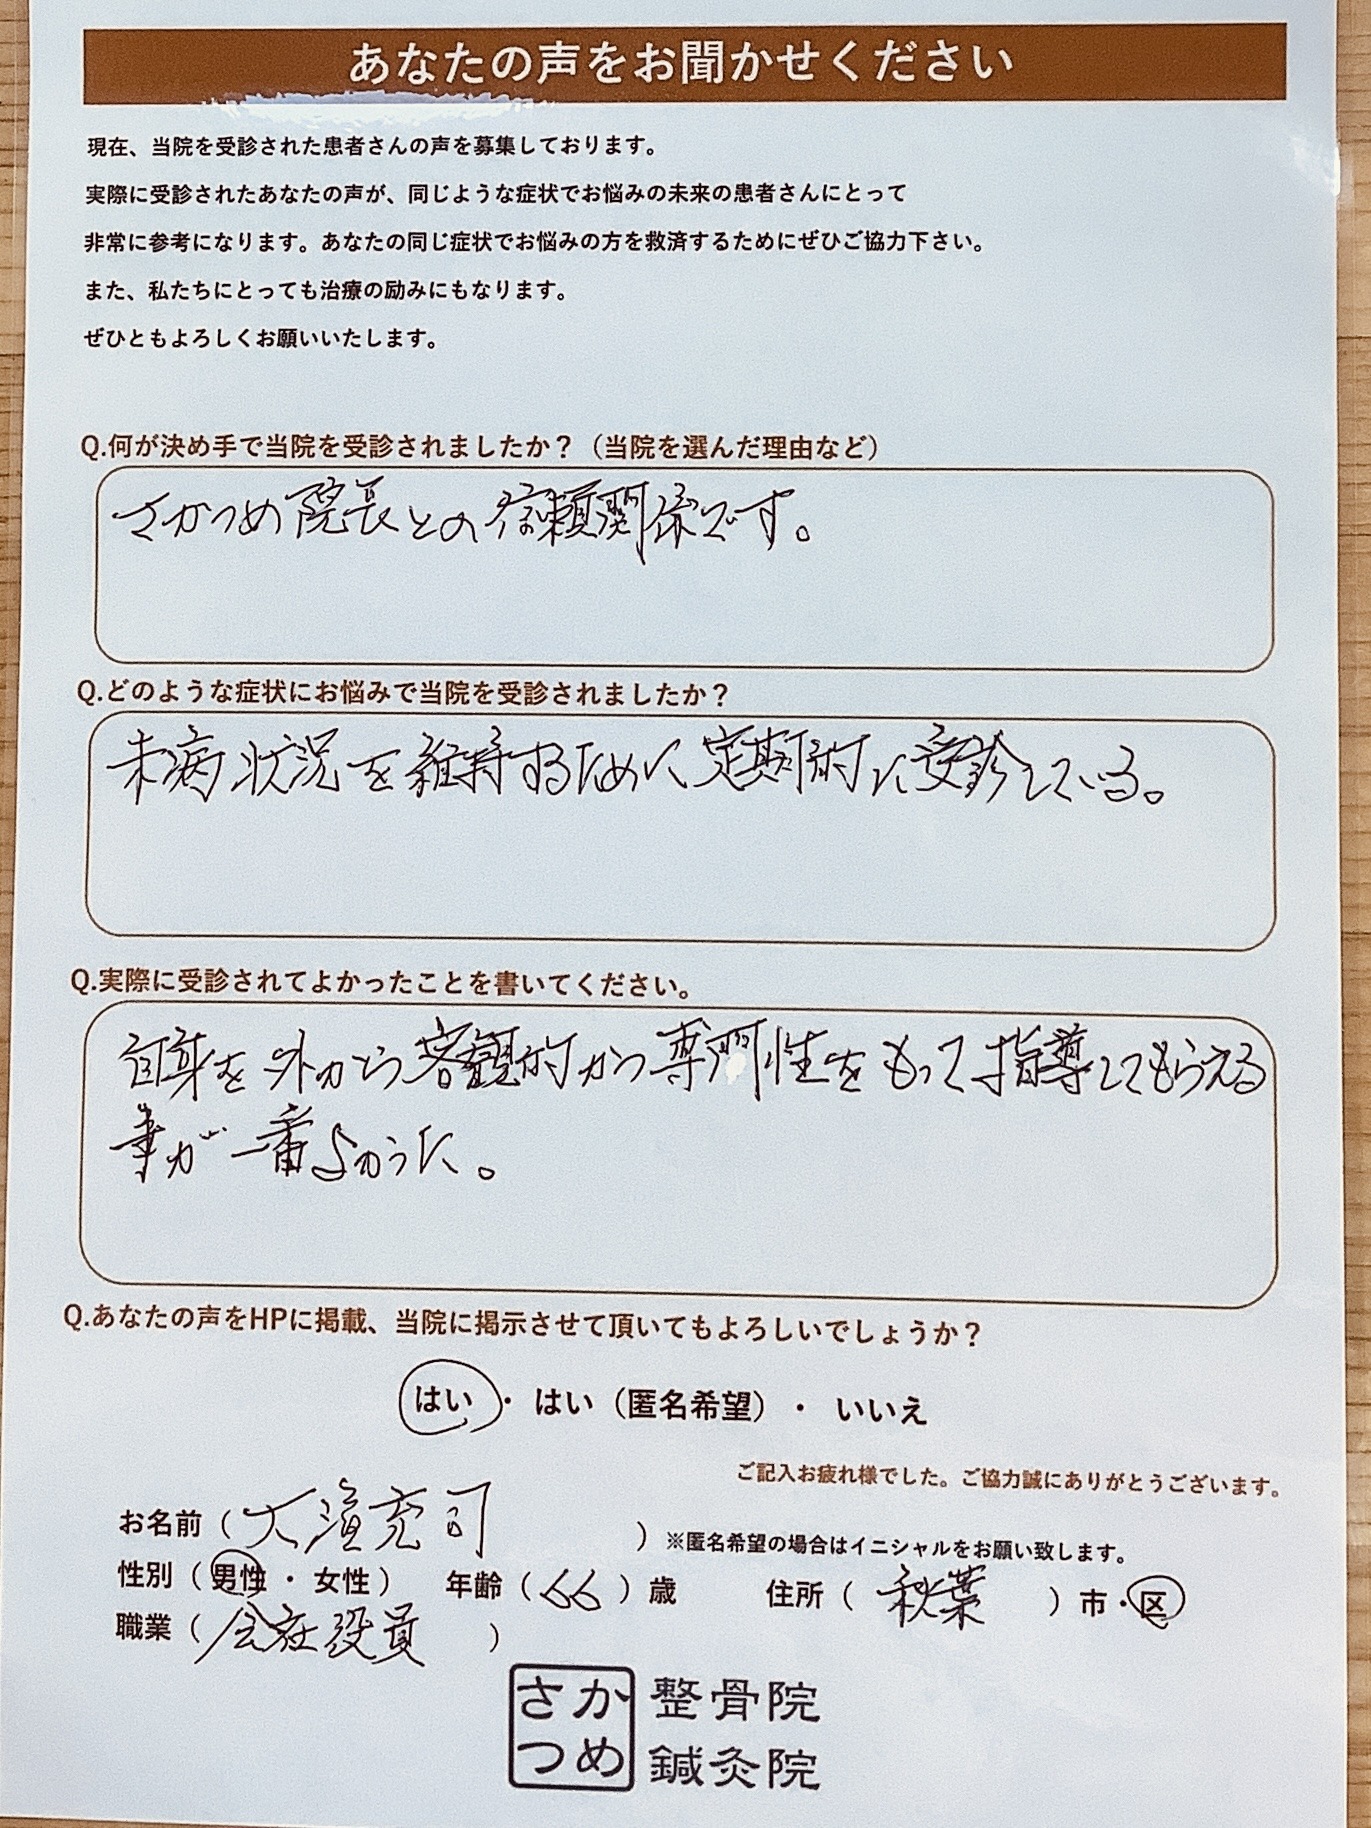 あなたの声をお聞かせください
現在、当院を受診された患者さんの声を募集しております。
実際に受診されたあなたの声が、同じような症状でお悩みの未来の患者さんにとって
非常に参考になります。あなたの同じ症状でお悩みの方を救済するためにぜひご協力下さい。
また、私たちにとっても治療の励みにもなります。
ぜひともよろしくお願いいたします。
Q.何が決め手で当院を受診されましたか？（当院を選んだ理由など）
さかつめ院長との信頼関係です。
Q.どのような症状にお悩みで当院を受診されましたか？
未病状況を維持するために定期的に受診している。
Q.実際に受診されてよかったことを書いてください。
自身を外から客観的かつ専門性をもって指導してもらえる
事が一番よかった。
Q.あなたの声をHPに掲載、当院に掲示させて頂いてもよろしいでしょうか？
はい・はい（匿名希望）・いいえ
ご記入お疲れ様でした。ご協力誠にありがとうございます。
お名前（大濵充司）※匿名希望の場合はイニシャルをお願い致します。
性別（男性・女性） 年齢（66）歳 住所（秋葉）市・区
職業（会社役員）
さか 整骨院
つめ 鍼灸院